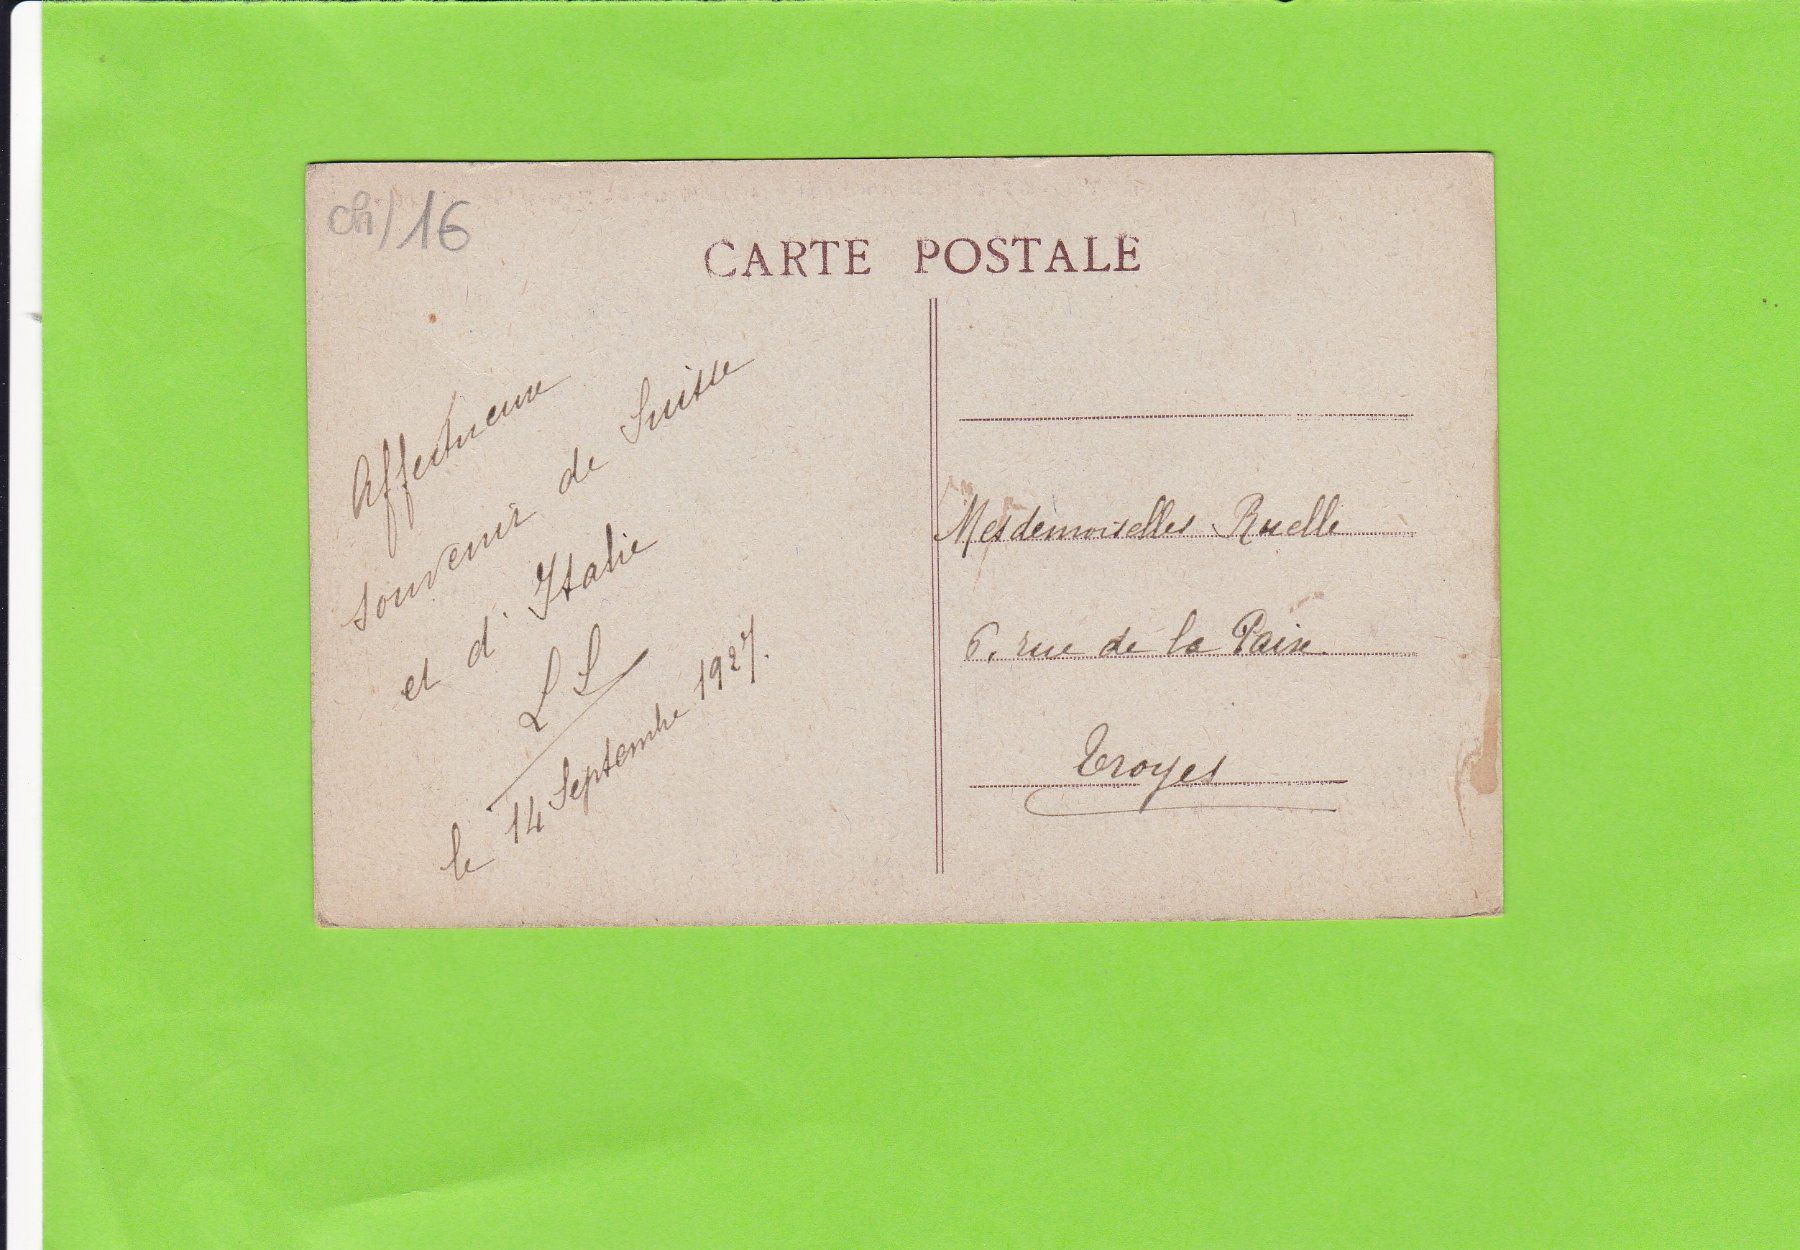 ch)16
CARTE POSTALE
Affectueux
souvenir de Suisse
et d'Italie
LL
le 14 Septembre 1927.
Mesdemoiselles Ruelle
6, rue de la Paix.
Troyes